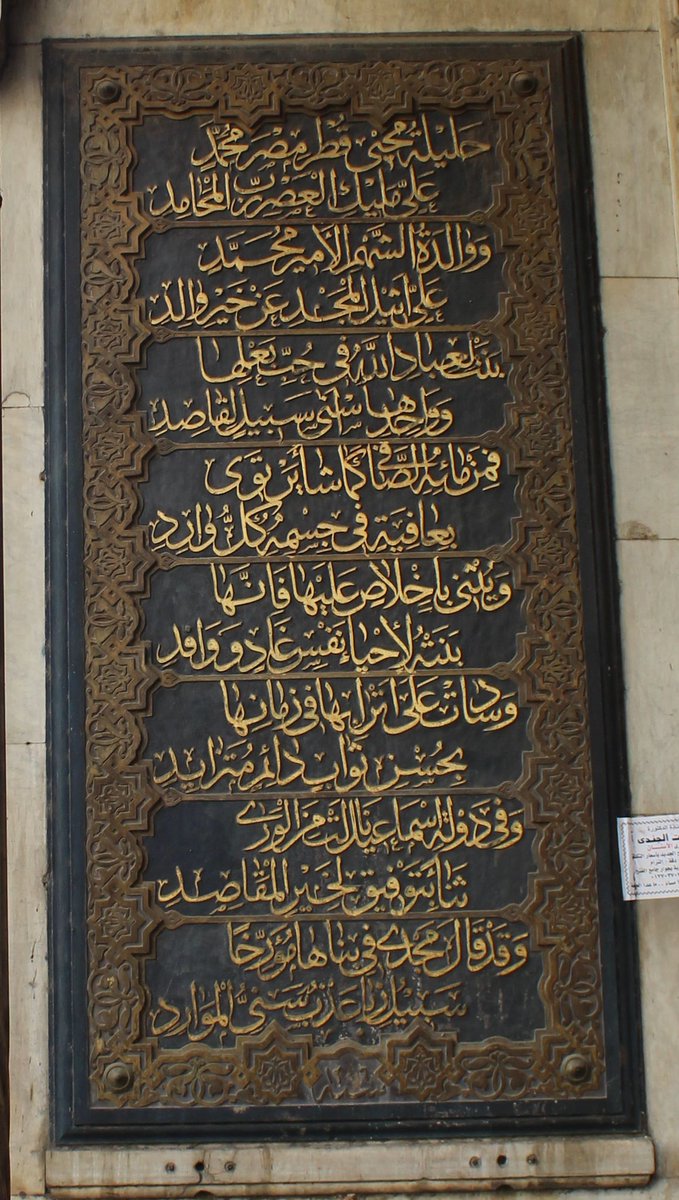 حليلة محيى قطر مصر محمد
على مليك العصر رب المحامد
ووالدة الشهم الأمير محمد
على أثيل المجد عن خير والد
بنت لعباد الله فى حب بعلها
وواحدها أسنى سبيل لقاصد
فمن مائه الصافى كما شا يرتوى
بعافية فى جسمه كل وارد
ويثنى بإخلاص عليها فإنها
بنته لأحياء نفس غاد ووافد
وسادت على أترابها فى زمانها
بحسن ثواب دائم متزايد
وفى دولة اسماعيل نالت من الورى
ثنا بتوفيق لخير المقاصد
وقد قال مجدى فى بناها مؤرخا
سبيل عذب سنى الموارد
الجندى
الأسنان